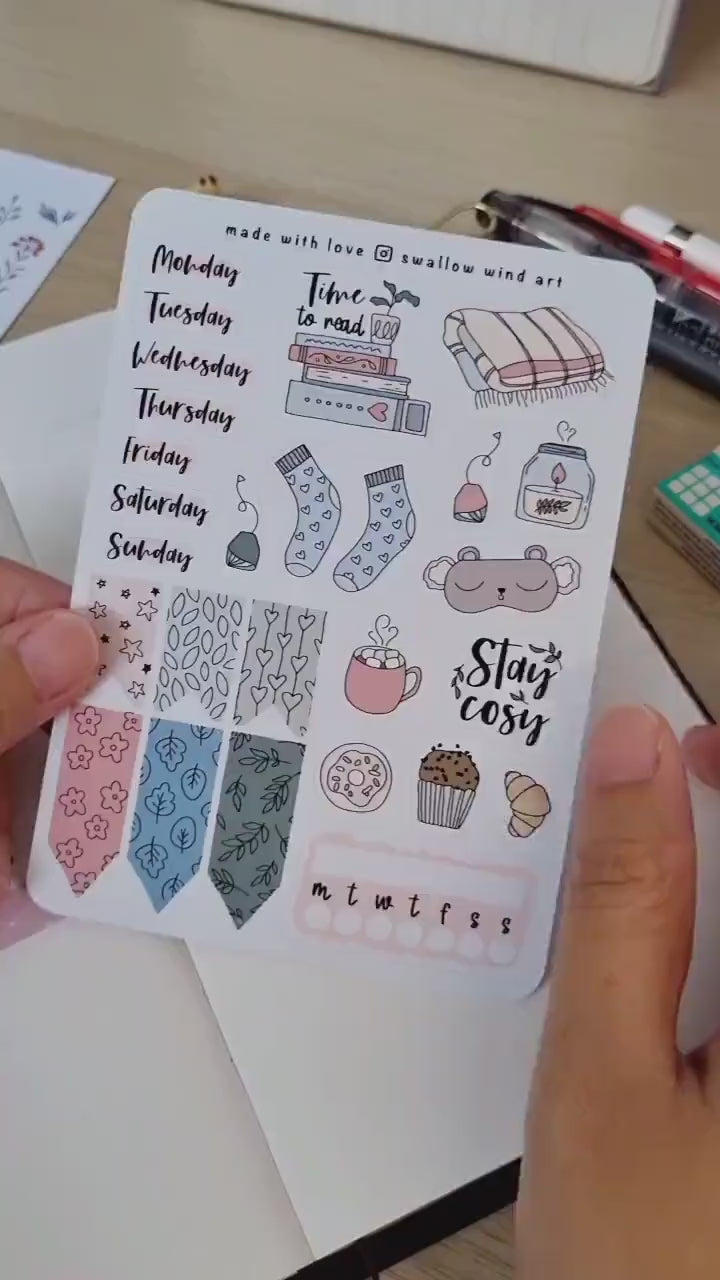 made with love swallow wind art
Monday
Tuesday
Wednesday
Thursday
Friday
Saturday
Sunday
Time
to read
Stay
cosy
m t w t f s s